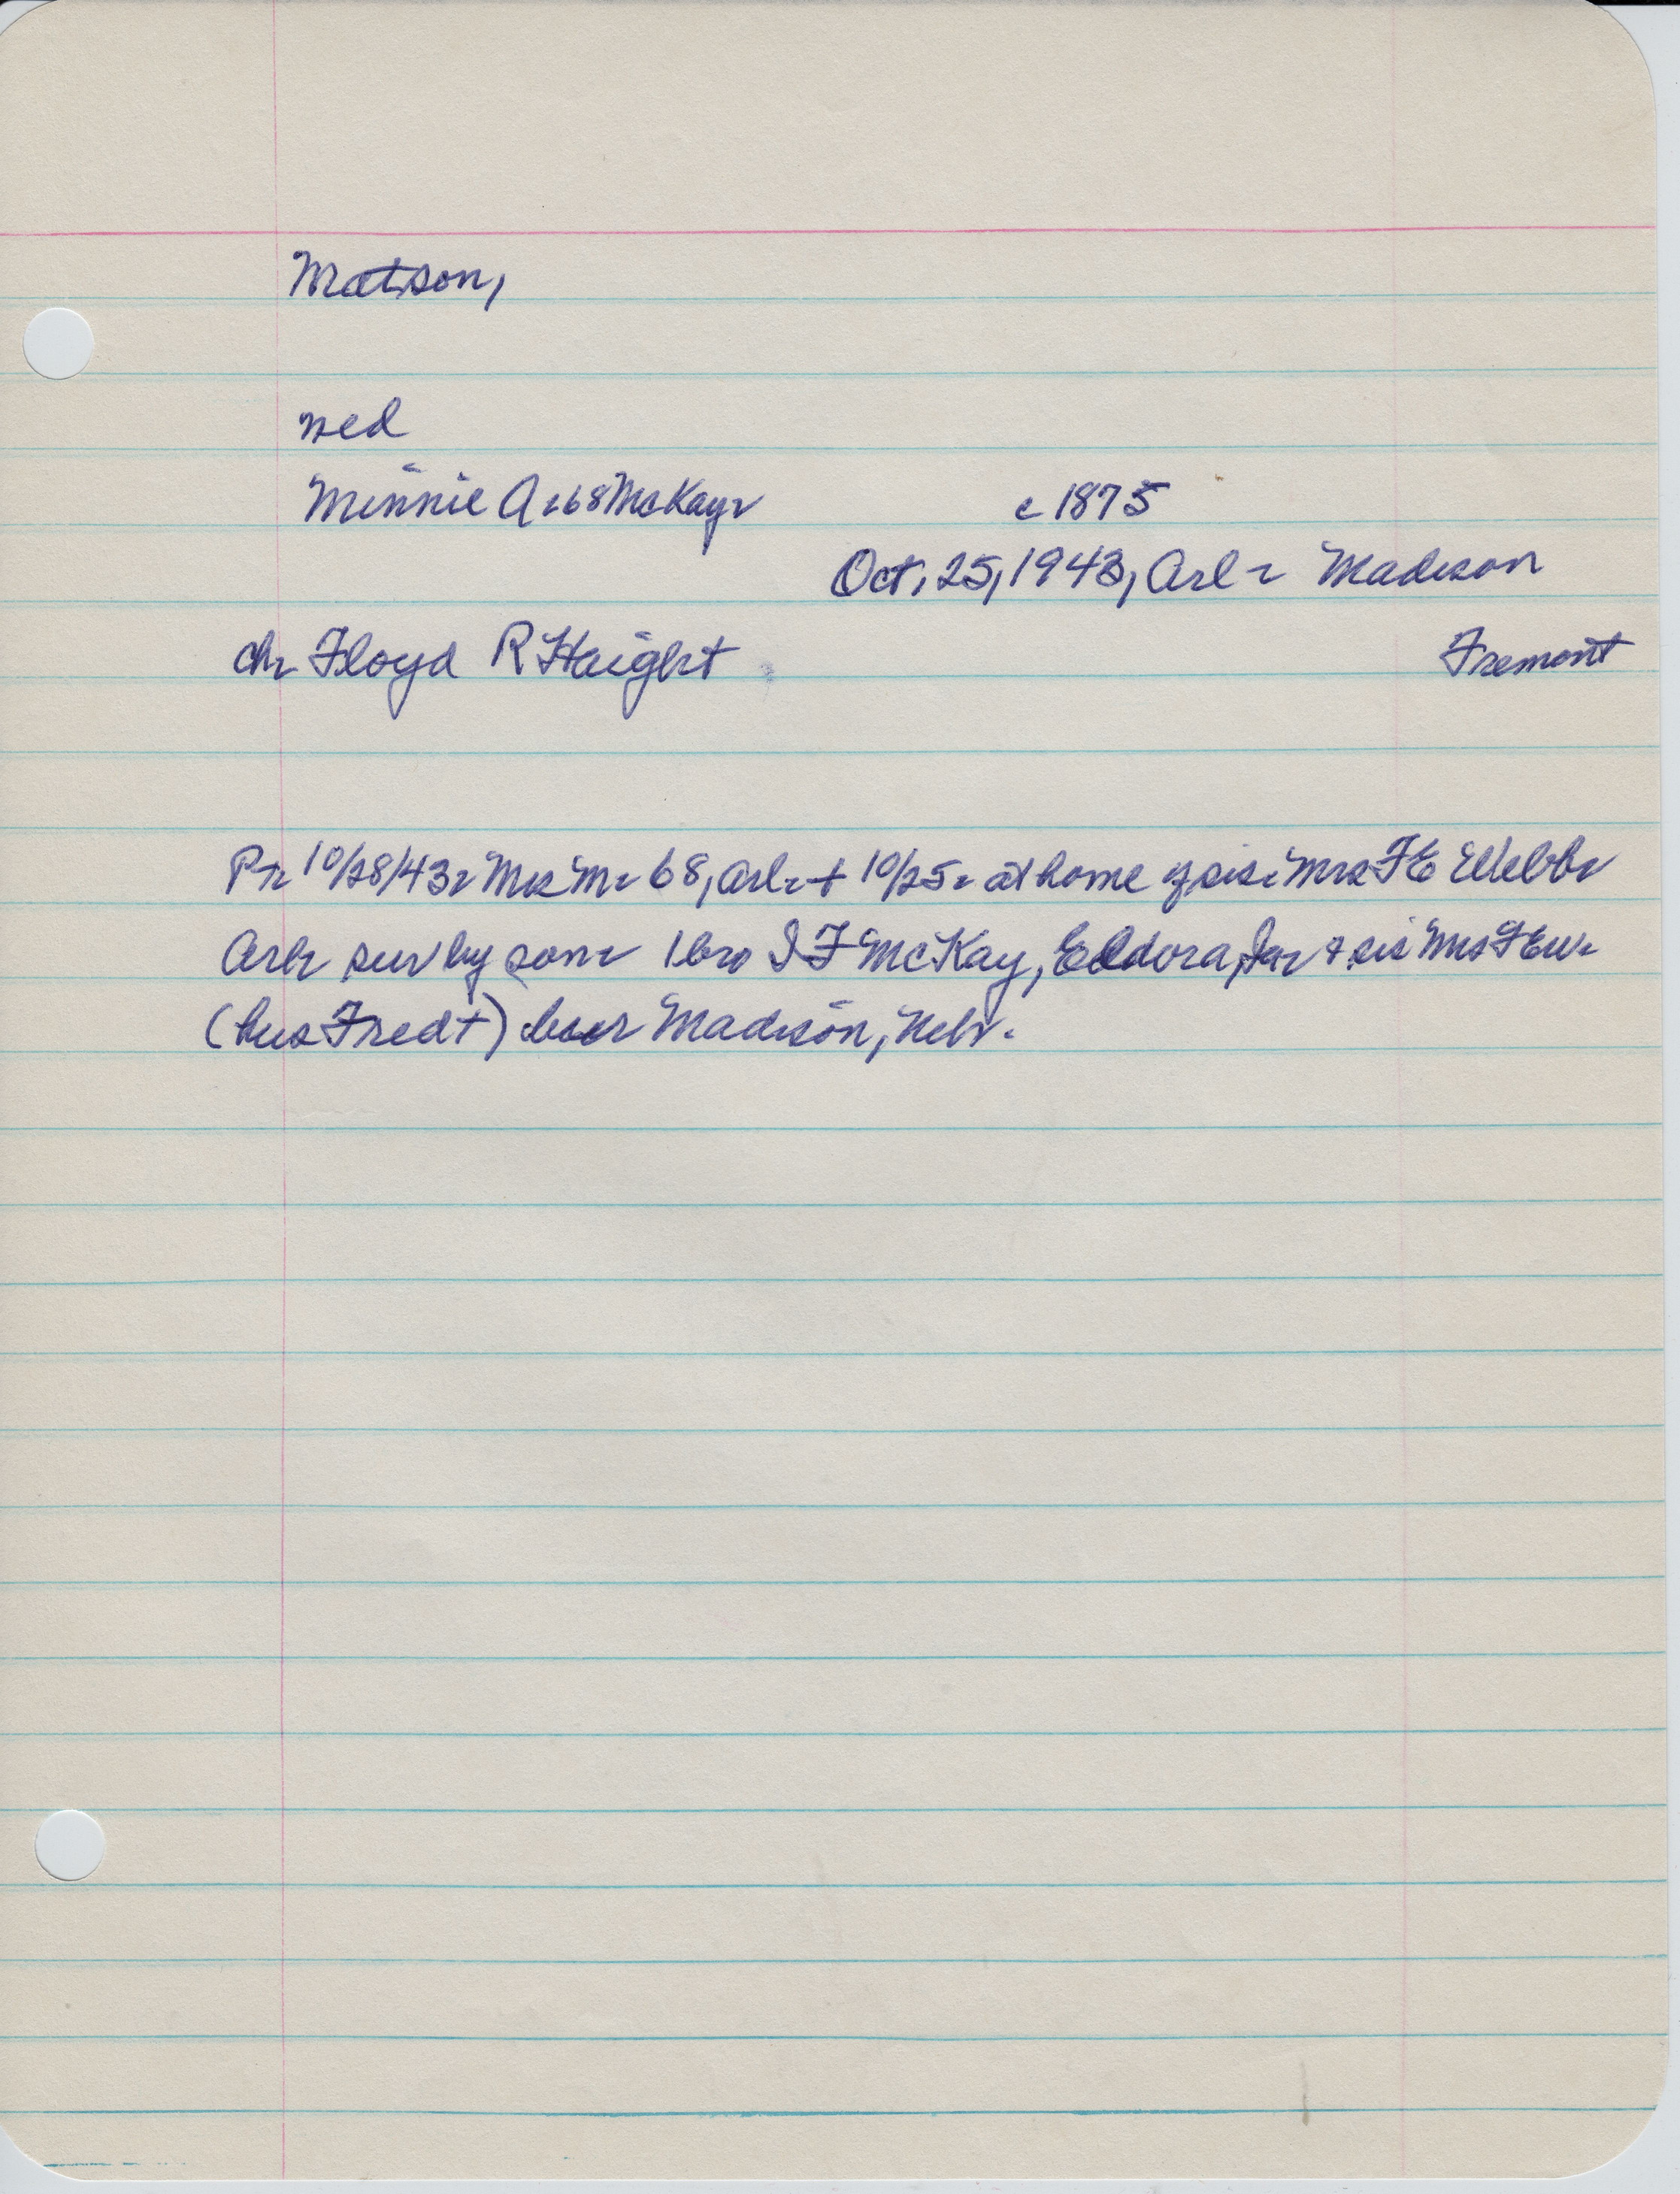 Matson,
Ned
Minnie A 68 McKay c 1875
Oct. 25, 1943, Arl - Madison
ch Floyd R Haight Fremont
10/28/43 Mrs M 68, Arl + 10/25 at home of sis Mrs F E Webb
Arl sur by son 1 bro I F McKay, Eldora, Ia + sis Mrs F E W.
(hus Fred +) bur Madison, Nebr.